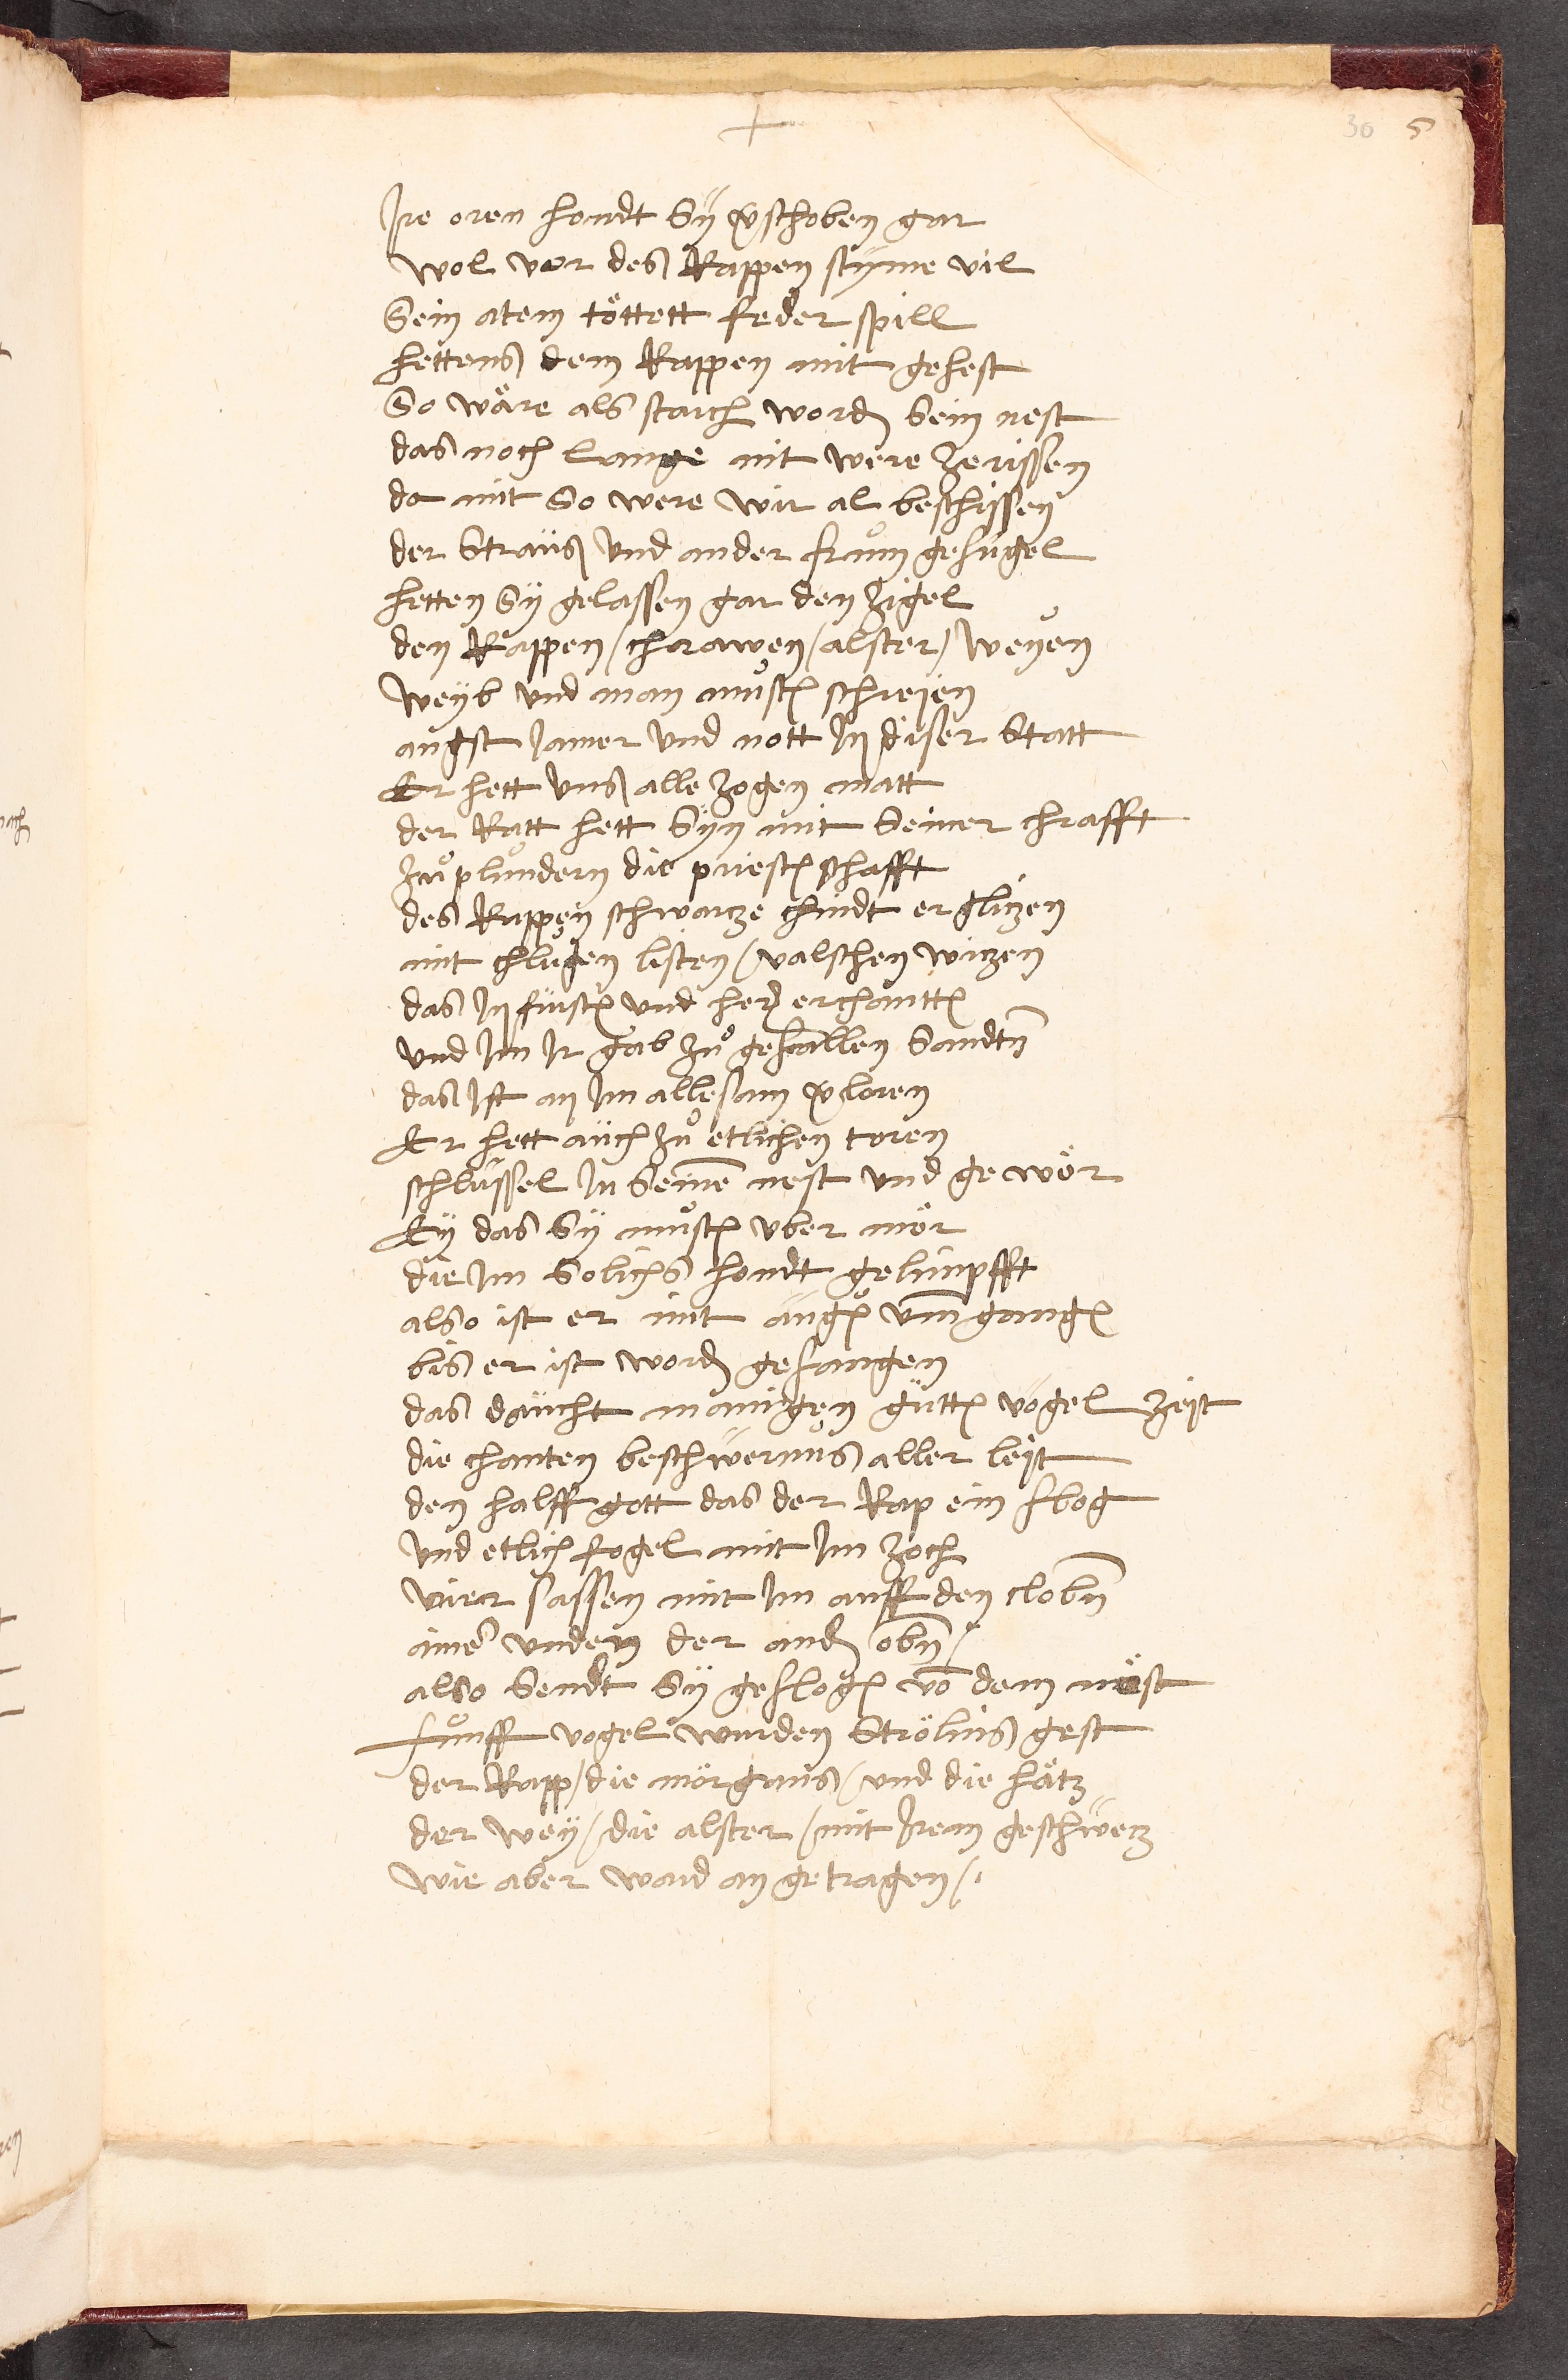 30 5
Ire oren handt Sÿ v̄schoben gar
wol vor des Rappen stÿme vil
Sein atem töttett feder spill
hettens dem Rappen mit gehest
So wäre als starch word sein nest
das noch lange nit were zerissen
da mit So were wir al beschissen
der Straüs vnd ander frum gefügel
hetten Sÿ gelassen gar den zigel
den Rappen / charawen / alster / weyen
weyb vnd man muͦstn schreÿen
angst Jamer vnd nott In diser Statt
Er hett vns alle zogen matt
der Ratt hett Sÿn mit Seiner chrafft
zuͦ plundern die priestrschafft
des Rappen schwarze chindt er glizen
mit chluͦgen listen / valschen wizen
das In fürstn vnd hern erchantn
vnd Im Ir gab zuͦ gefallen Sandtn̄
das Ist an Im alle sam v̄loren
Er hett aüch zuͦ etlichen toren
schlüssel In seinē nest vnd gewör
Eÿ das Sÿ muͦstn vber mör
die Im Solichs handt gelimpfft
also ist er mit äugn vm̄gangn
bis er ist word gefangen
das däucht manigen güttn vogel zeit
die chanten beschwernus aller leÿt
den halff gott das der Rap ein flog
vnd etlich fogel mit Im zoch
vier sassen mit Im auff den clobn̄
ainer vnden der and obn̄ /
also Sendt Sÿ geflogn vō dem näst
fuͦnff vogel wurden Strölins gest
der Rapp / die mörgans / vnd die hätz
der weÿ / die alster / mit Irem geschwetz
wie aber ward an getragen /